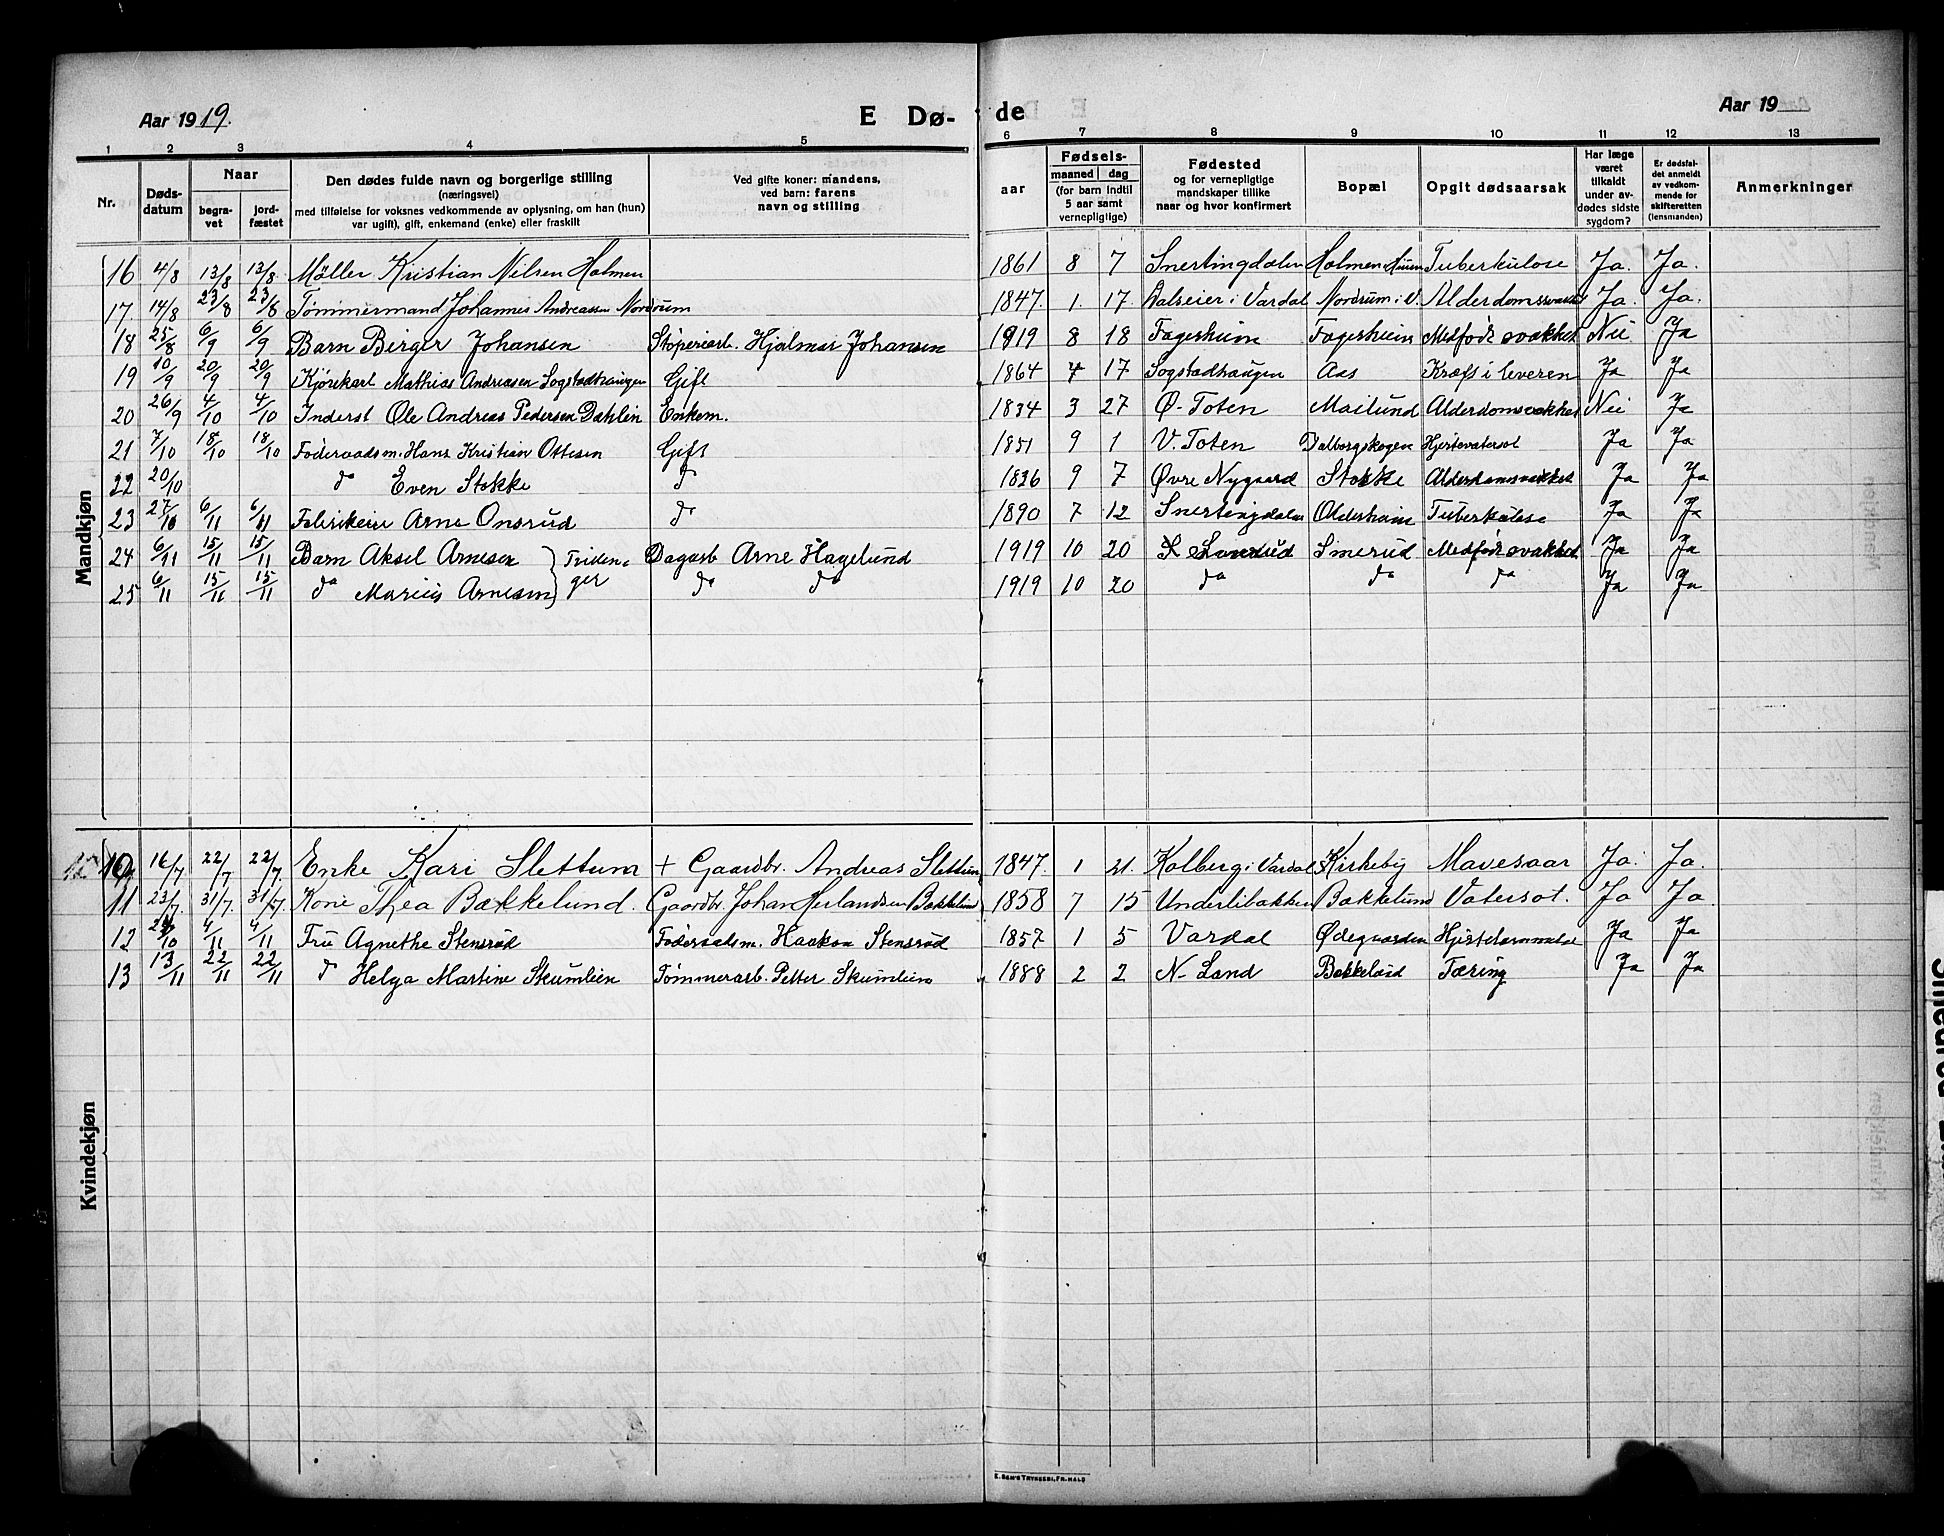 Aar 1919.
E Dø- de
Aar 19
1 2 3 4 5 6 7 8 9 10 11 12 13
Nr.
Døds-
datum
Naar
begra-
vet
jord-
fæstet
Den dødes fulde navn og borgerlige stilling
(næringsvei)
med tilføielse for voksnes vedkommende av oplysning, om han (hun)
var ugift, gift, enkemand (enke) eller fraskilt
Ved gifte koner: mandens,
ved barn: farens
navn og stilling
aar
Fødsels-
maaned dag
(for barn indtil
5 aar samt
vernepligtige)
Fødested
og for vernepligtige
mandskaper tillike
naar og hvor konfirmert
Bopæl
Opgit dødsaarsak
Har læge
været
tilkaldt
under av-
dødes sidste
sygdom?
Er dødsfal-
det anmeldt
av vedkom-
mende for
skifteretten
(lensmanden)
Anmerkninger
Mandkjøn
16 4/8 13/8 13/8 Møller Kristian Nilsen Holmen 1861 8 7 Snertingdalen Holmen Tuberkulose Ja. Ja.
17. 14/8 23/8 23/8 Tømmermand Johannes Andreassen Nordrum 1847. 1. 17. i Vardal Nordrum i V. Ja. Ja.
18 25/8 6/9 6/9 Barn Birger Johansen Støperiarb. Hjalmar Johansen 1919 8 18 Fagerheim Fagerheim Medfødt svakhet Nei Ja
19 10/9 20/9 20/9 Kjørekarl Mathias Andreasen Sogstadhaugen Gift 1864 4 17 Sogstadhaugen Aas Kræft i leveren Ja Ja
20 26/9 4/10 4/10 Inderst Ole Andreas Pedersen Dahlen Enkem. 1834 3 27 Ø. Toten Mailund Alderdomsvakhet Nei Ja
21 7/10 18/10 18/10 Føderaadsm. Hans Kristian Ottesen Gift 1851 9 1 V. Toten Dalborgskogen Hjertevatersot Ja Ja
22 20/10 do Even Stokke do 1836 9 7 Øvre Nygaard Stokke Alderdomsvakhet Ja Ja
23 27/10 6/11 6/11 Fabrikeier Arne Onsrud do 1890 7 12 Snertingdalen Alderheim Tuberkulose Ja Ja
24 6/11 15/11 15/11 Barn Aksel Arnesen } Triden- Dagarb Arne Hagelund 1919 10 20 Smerud Medfødt svakhet Ja Ja
25 6/11 15/11 15/11 do Marius Arnesen } ger do do 1919 10 20 do do do Ja Ja
Kvindekjøn
10 16/7 22/7 22/7 Enke Kari Slettum + Gaardbr. Andreas Slettum 1847. 1 21. Kolberg i Vardal Kirkeby Mavesaar Ja. Ja.
11 23/7. 31/7. 31/7. Kone Thea Bækkelund. Gaardbr. Johan Herlandsen Bækkelund 1858 7 15 Underlibakken Bækkelund Vatersot. Ja Ja.
12 4/11 4/11 Fru Agnethe Stensrud Føderaadsm. Haakon Stensrud 1857. 1 5 Vardal Ødegaarden Hjertelammelse Ja Ja
13 13/11 22/11 22/11 do Helga Martine Skumlien Tømmerarb. Petter Skumlien 1888 2 2 N. Land Bækkelund Tæring Ja Ja
E. SEM'S TRYKKERI, FR.HALD